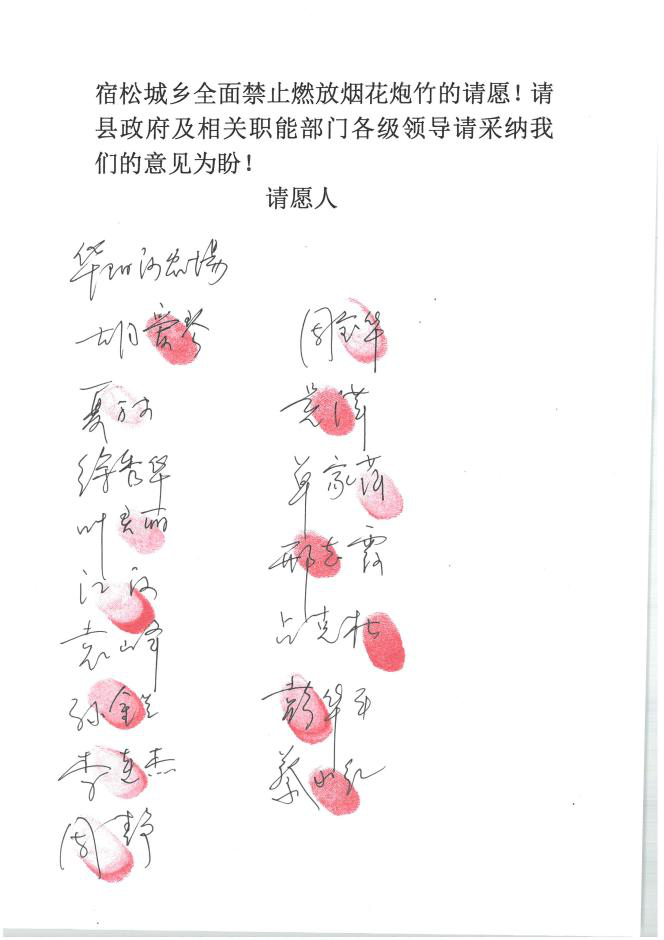 宿松城乡全面禁止燃放烟花炮竹的请愿！请
县政府及相关职能部门各级领导请采纳我
们的意见为盼！
请愿人
华阳河农场
胡爱琴 周宝华
夏
徐秀华 单家萍
叶 邢志霞
江河
袁山峰 占克松
孙金 彭华平
李连杰 蔡小红
周静